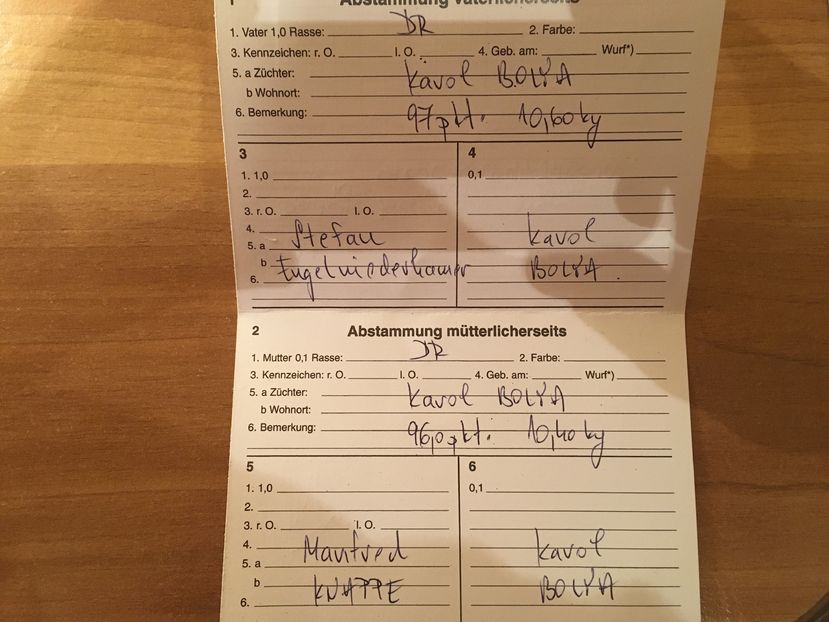 1 Abstammung väterlicherseits
1. Vater 1,0 Rasse: DR 2. Farbe:
3. Kennzeichen: r. O. l. O. 4. Geb. am: Wurf*)
5. a Züchter: Karol BOLYA
b Wohnort:
6. Bemerkung: 97pkt. 10,60kg
3 4
1. 1,0 0,1
2.
3. r. O. l. O.
4.
5. a Stefan Karol
b Engelniederhamer BOLYA
6.
2 Abstammung mütterlicherseits
1. Mutter 0,1 Rasse: DR 2. Farbe:
3. Kennzeichen: r. O. l. O. 4. Geb. am: Wurf*)
5. a Züchter: Karol BOLYA
b Wohnort:
6. Bemerkung: 96,0pkt. 10,40kg
5 6
1. 1,0 0,1
2.
3. r. O. l. O.
4. Manfred Karol
5. a
b KNAPPE BOLYA
6.